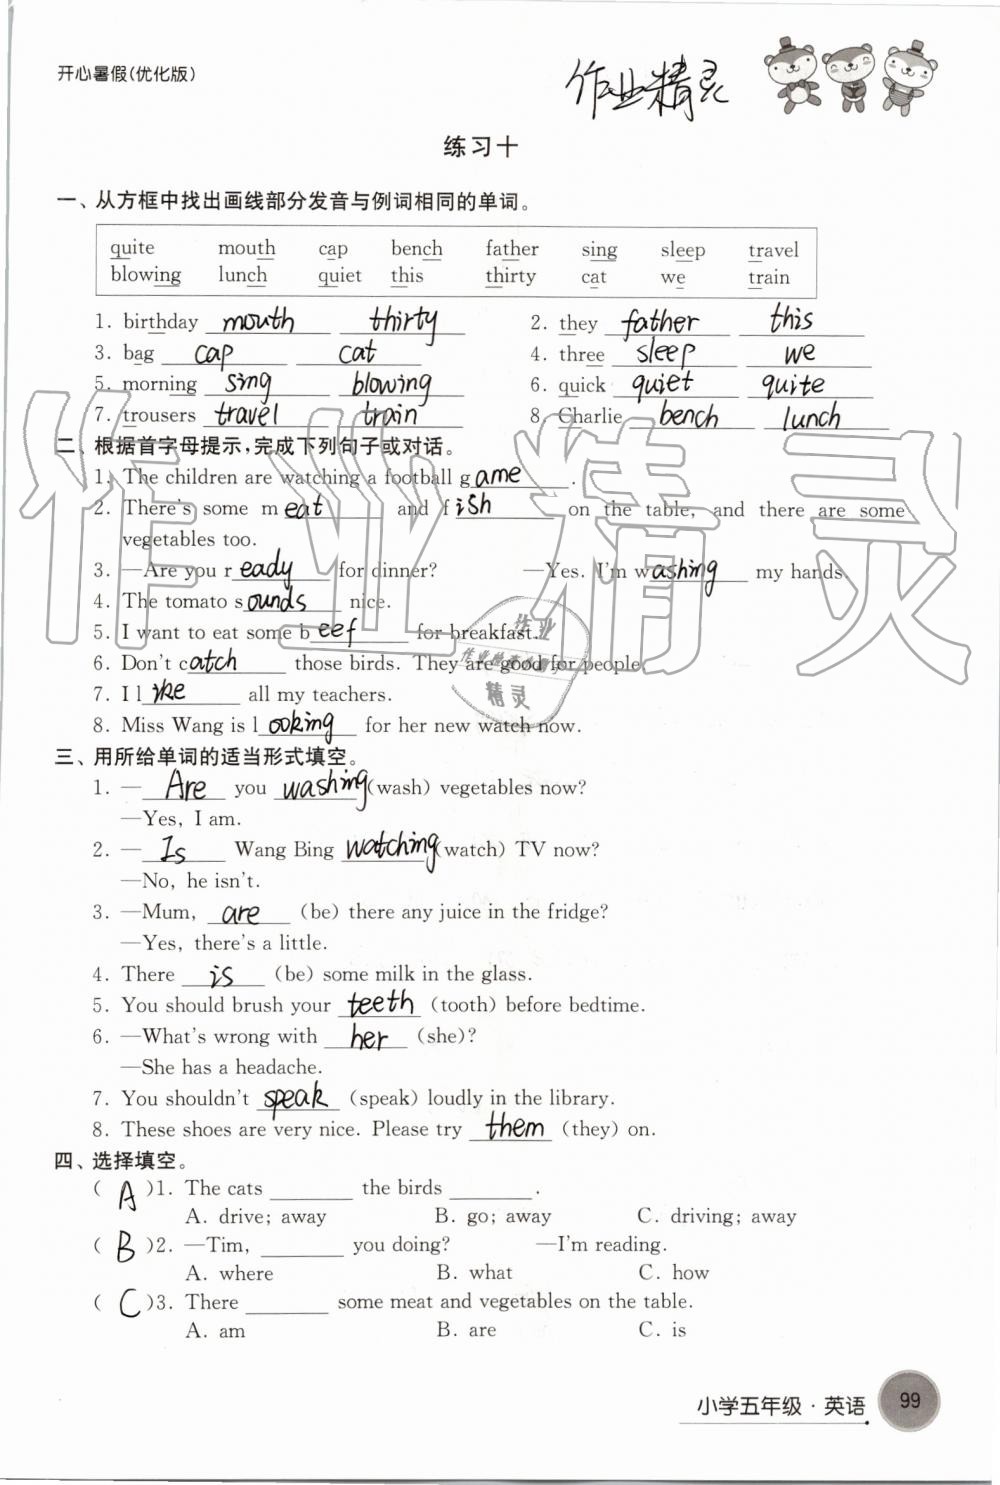 开心暑假(优化版)
作业精灵
练习十
一、从方框中找出画线部分发音与例词相同的单词。
quite mouth cap bench father sing sleep travel
blowing lunch quiet this thirty cat we train
1. birthday mouth thirty 2. they father this
3. bag cap cat 4. three sleep we
5. morning sing blowing 6. quick quiet quite
7. trousers travel train 8. Charlie bench lunch
二、根据首字母提示,完成下列句子或对话。
1. The children are watching a football game.
2. There's some meat and fish on the table, and there are some
vegetables too.
3. —Are you ready for dinner? —Yes. I'm washing my hands.
4. The tomato sounds nice.
5. I want to eat some beef for breakfast.
6. Don't catch those birds. They are good for people.
7. I like all my teachers.
8. Miss Wang is looking for her new watch now.
三、用所给单词的适当形式填空。
1. — Are you washing (wash) vegetables now?
—Yes, I am.
2. — Is Wang Bing watching (watch) TV now?
—No, he isn't.
3. —Mum, are (be) there any juice in the fridge?
—Yes, there's a little.
4. There is (be) some milk in the glass.
5. You should brush your teeth (tooth) before bedtime.
6. —What's wrong with her (she)?
—She has a headache.
7. You shouldn't speak (speak) loudly in the library.
8. These shoes are very nice. Please try them (they) on.
四、选择填空。
( A )1. The cats ________ the birds ________.
A. drive; away B. go; away C. driving; away
( B )2. —Tim, ________ you doing? —I'm reading.
A. where B. what C. how
( C )3. There ________ some meat and vegetables on the table.
A. am B. are C. is
小学五年级·英语 99
作业精灵
作业
作业检查小助
精灵